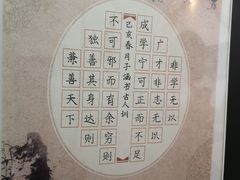 非学无以
广才非志无以
成学宁可正而不足
己亥春月子涵书古人训
不可邪而有余穷则
独善其身达则
兼善天下